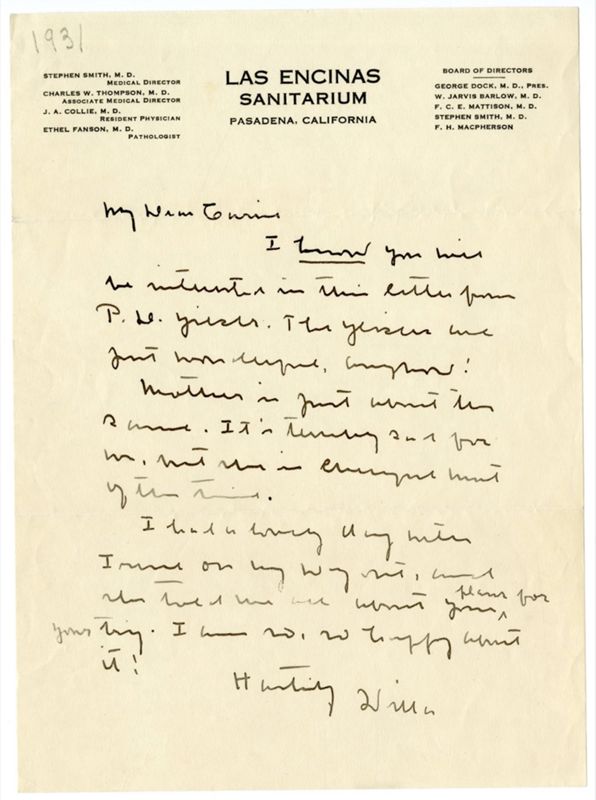 1931
STEPHEN SMITH, M. D.
MEDICAL DIRECTOR
CHARLES W. THOMPSON, M. D.
ASSOCIATE MEDICAL DIRECTOR
J. A. COLLIE, M. D.
RESIDENT PHYSICIAN
ETHEL FANSON, M. D.
PATHOLOGIST
LAS ENCINAS
SANITARIUM
PASADENA, CALIFORNIA
BOARD OF DIRECTORS
GEORGE DOCK, M. D., PRES.
W. JARVIS BARLOW, M. D.
F. C. E. MATTISON, M. D.
STEPHEN SMITH, M. D.
F. H. MACPHERSON
My Dear Carrie
I know you will
be interested in this letter from
P. G. The are
just wonderful, anyhow!
Mother is just about the
same. It's terribly sad for
me, but she is cheerful most
of the time.
I had a lovely day with
Irene on my way out, and
she told me all about plans for
your trip. I am so, so happy about
it!
Heartily
Willa